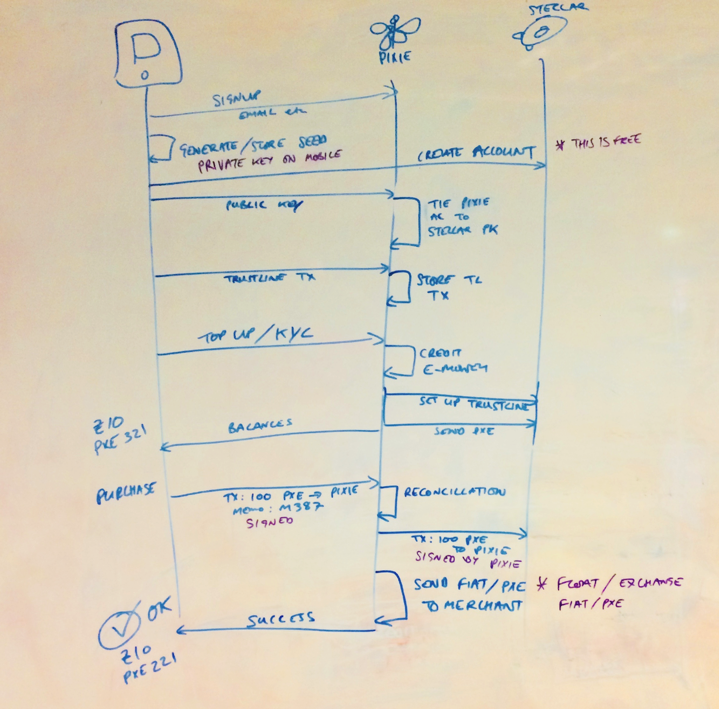 P
PIXIE
STELLAR
SIGNUP
EMAIL etc
GENERATE/STORE SEED
PRIVATE KEY ON MOBILE
CREATE ACCOUNT
* THIS IS FREE
PUBLIC KEY
TIE PIXIE
AC TO
STELLAR PK
TRUSTLINE TX
STORE TL
TX
TOP UP/KYC
CREDIT
E-MONEY
SET UP TRUSTLINE
SEND PXE
BALANCES
Z10
PXE 321
PURCHASE
TX: 100 PXE → PIXIE
MEMO: M387
SIGNED
RECONCILLATION
TX: 100 PXE
TO PIXIE
SIGNED BY PIXIE
SEND FIAT/PXE
TO MERCHANT
* FLOAT/EXCHANGE
FIAT/PXE
SUCCESS
OK
Z10
PXE 221